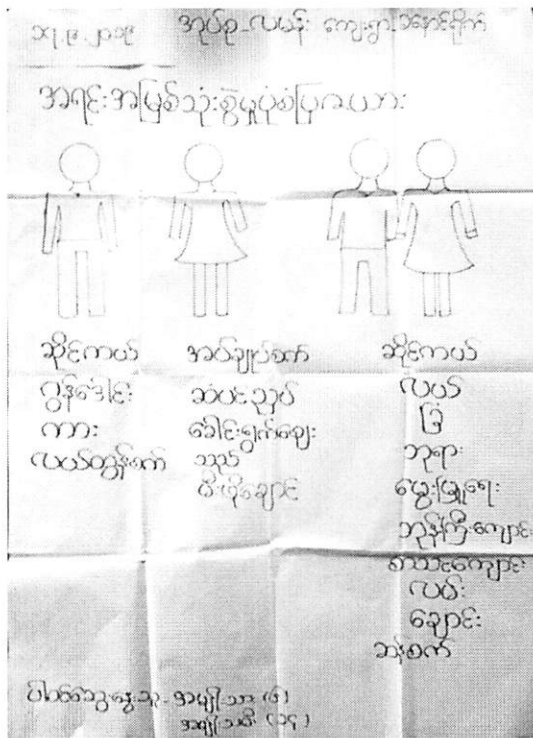 ၁၇.၉.၂၀၁၉ အုပ်စု-လယ်နီ ကျေးရွာ-အနောက်ရိုက်
အရင်းအမြစ်သုံးစွဲမှုပုံစံပြဇယား
ဆိုင်ကယ်
ဂွန်ဒေါင်း
ကား
လယ်ထွန်စက်
အပ်ချုပ်စက်
ဆံပင်ညှပ်
ခေါင်းရွက်ဈေးသည်
မီးဖိုချောင်
ဆိုင်ကယ်
လယ်
ခြံ
ဘုရား
မွေးမြူရေး
ဘုန်းကြီးကျောင်း
စာသင်ကျောင်း
လမ်း
ချောင်း
ဆန်စက်
ပါဝင်ဆွေးနွေးသူ-အမျိုးသား (၆)
အမျိုးသမီး (၁၄)